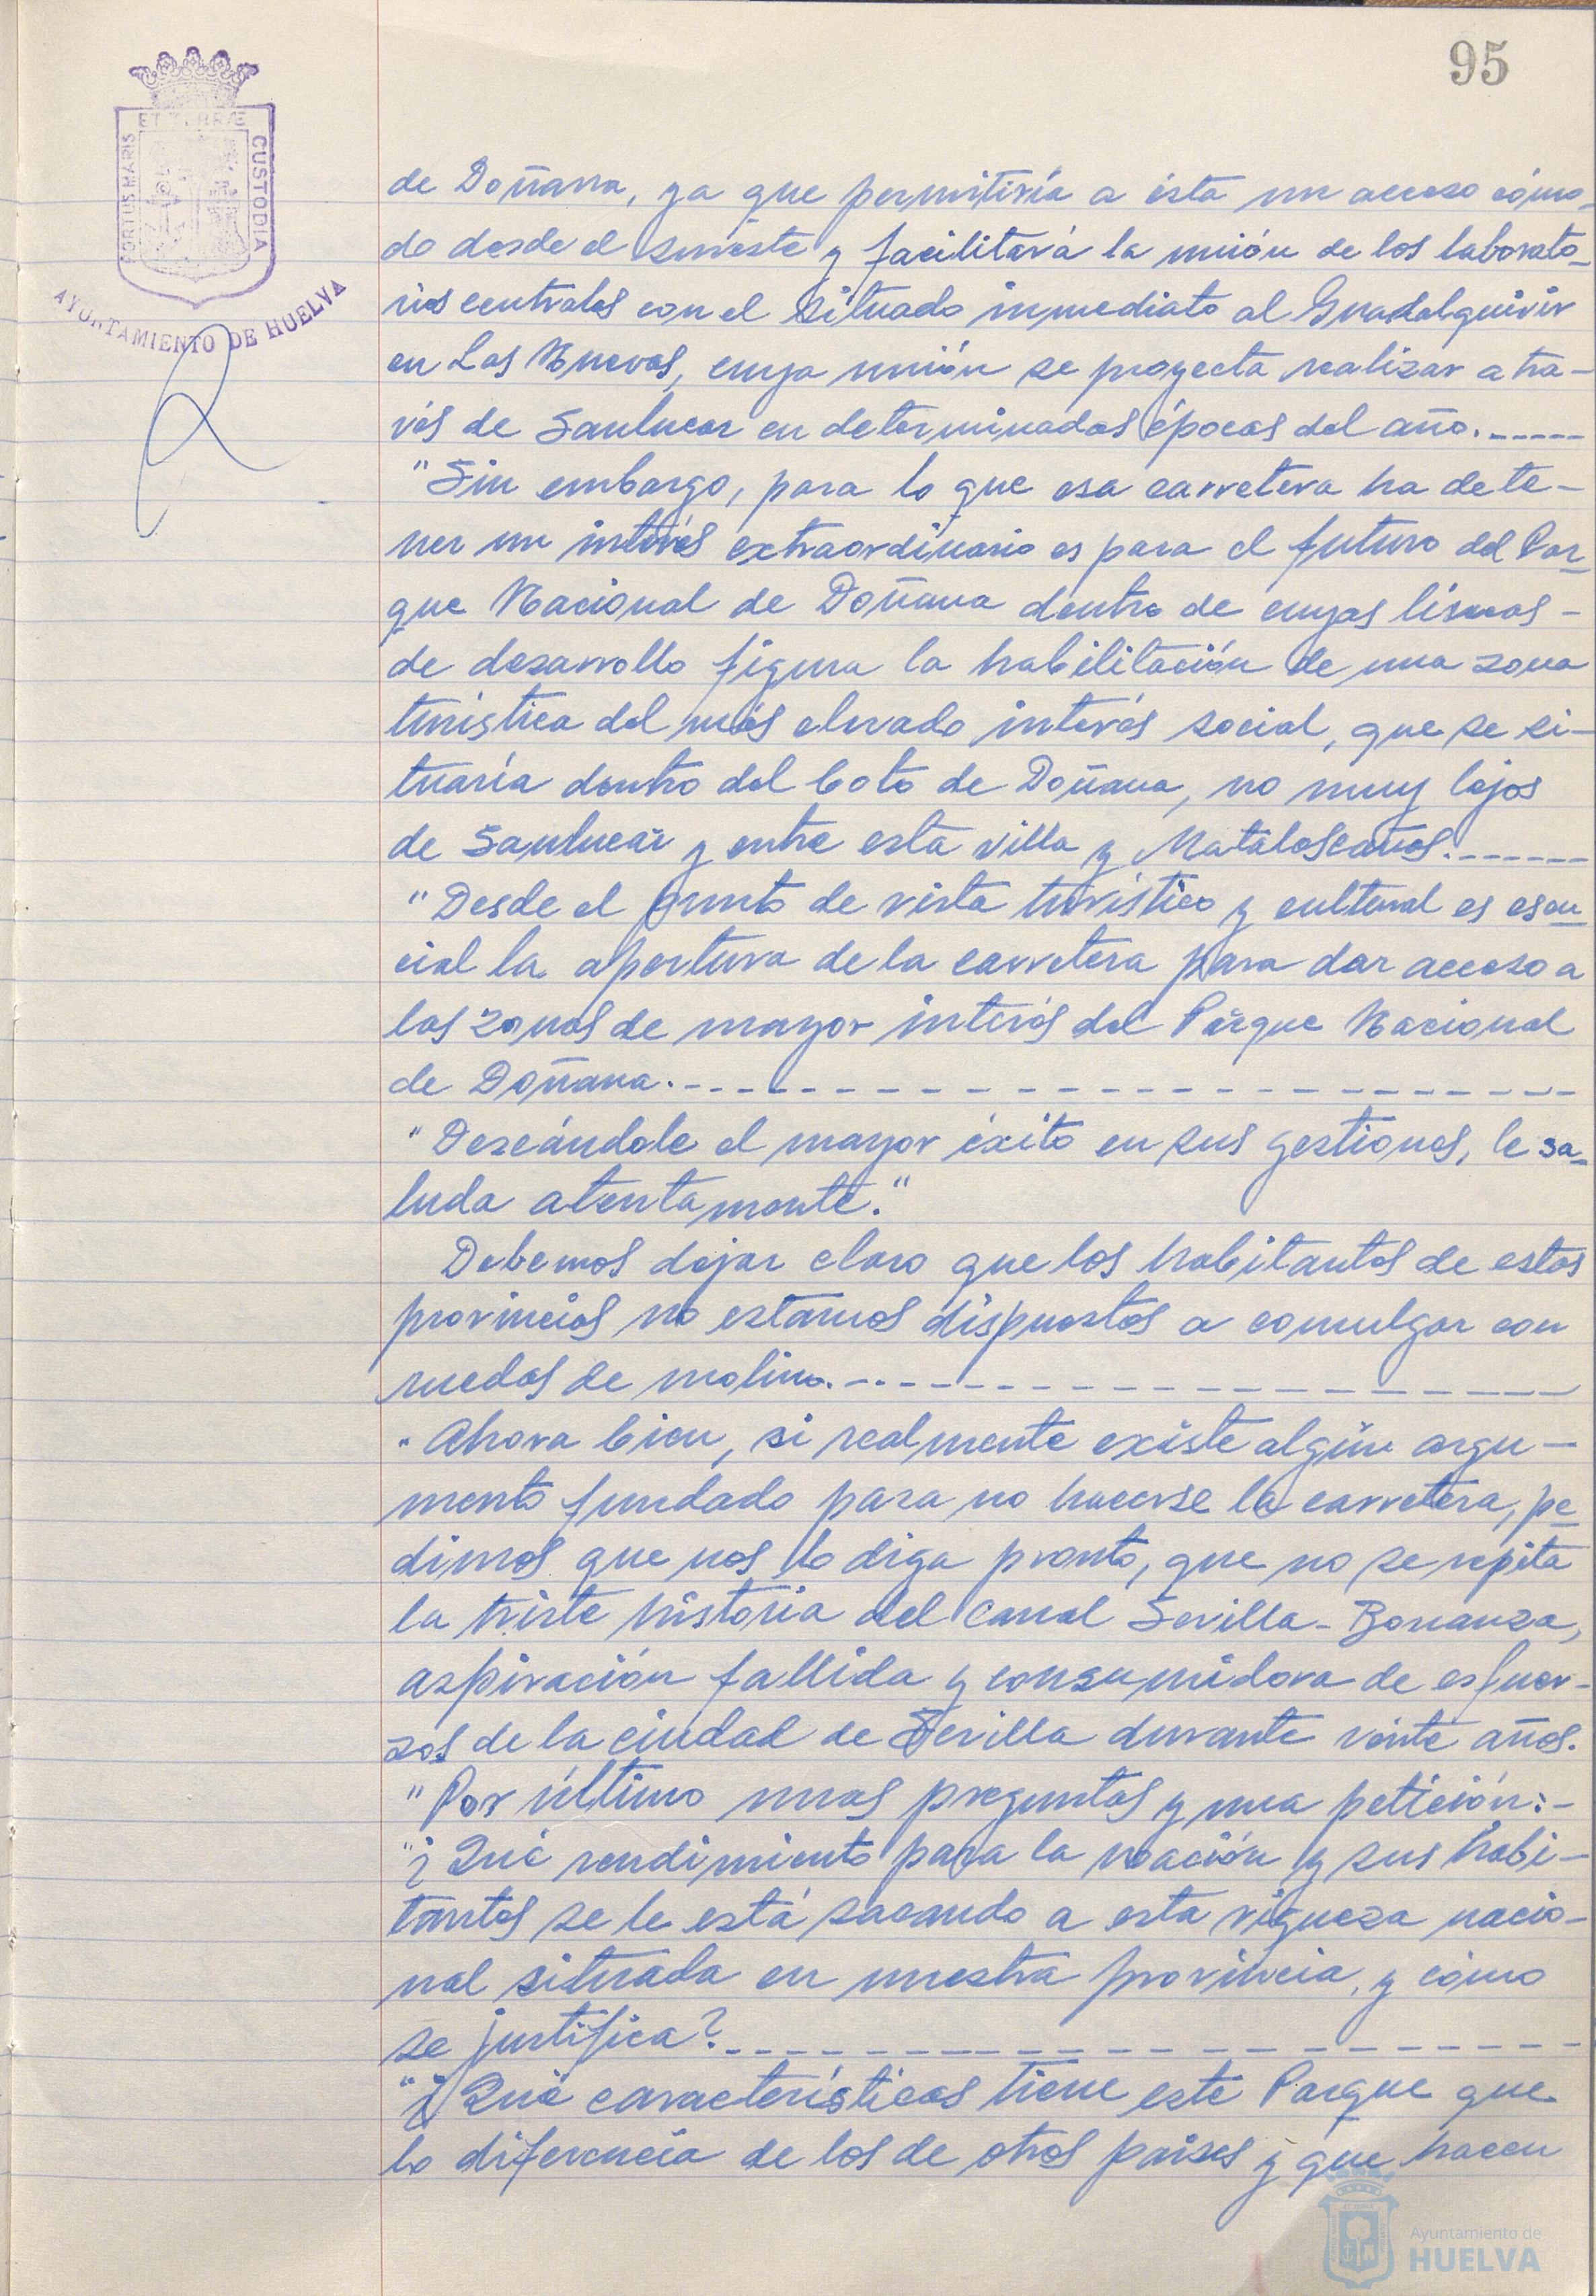 95
PORTUS MARIS ET TERRÆ CUSTODIA
AYUNTAMIENTO DE HUELVA
de Doñana, ya que permitiría a ésta un acceso cómo-
do desde el sureste y facilitará la unión de los laborato-
rios centrales con el situado inmediato al Guadalquivir
en Las Nuevas, cuya unión se proyecta realizar a tra-
vés de Sanlucar en determinadas épocas del año.------
"Sin embargo, para lo que esa carretera ha de te-
ner un interés extraordinario es para el futuro del Par-
que Nacional de Doñana dentro de cuyas líneas -
de desarrollo figura la habilitación de una zona
turística del más elevado interés social, que se si-
tuaría dentro del Coto de Doñana, no muy lejos
de Sanlucar y entre esta villa y Matalascañas.------
"Desde el punto de vista turístico y cultural es esen-
cial la apertura de la carretera para dar acceso a
las zonas de mayor interés del Parque Nacional
de Doñana.------------------------
"Deseándole el mayor éxito en sus gestiones, le sa-
luda atentamente."
Debemos dejar claro que los habitantes de estas
provincias no estamos dispuestos a comulgar con
ruedas de molino.------------------
"Ahora bien, si realmente existe algún argu-
mento fundado para no hacerse la carretera, pe-
dimos que nos lo diga pronto, que no se repita
la triste historia del Canal Sevilla-Bonanza,
aspiración fallida y consumidora de esfuer-
zos de la ciudad de Sevilla durante veinte años.
"Por último unas preguntas y una petición:-
"¿Qué rendimiento para la nación y sus habi-
tantes se le está sacando a esta riqueza nacio-
nal situada en nuestra provincia, y cómo
se justifica?.----------------------
"¿Qué características tiene este Parque que
lo diferencia de los de otros países y que hacen
Ayuntamiento de
HUELVA